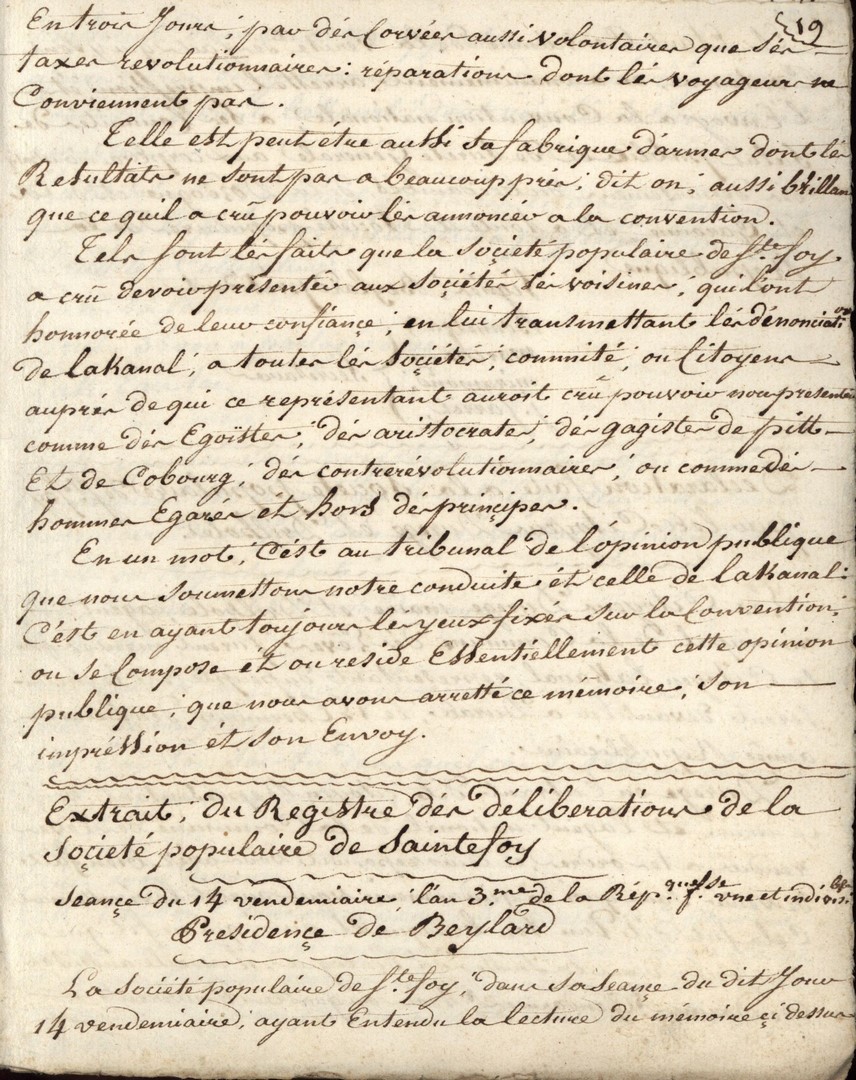 19
En trois Jours; par dés Corvées aussi volontaires que sés
taxes revolutionnaires: réparations dont lés voyageurs ne
Conviennent pas.
Telle est peut étre aussi sa fabrique d'armes dont lés
Resultats ne sont pas a beaucoup prés; dit on; aussi brillan
que ce quil a crû pouvoir lés annoncér a la convention.
Tels sont lés faits que la soçieté populaire de Ste. foy
a crû devoir présentér aux soçiétés sés voisines; qui l'ont
honnorée de leur confiançe; en lui transmettant lés dénonciations
de laKanal; a toutes lés soçiétés; commité; ou Citoyens
auprés de qui ce représentant auroit crû pouvoir nous presenter
comme dés Egoïstes; dés aristocrates; dés gagistes de pitt
Et de Cobourg; dés contrerévolutionnaires; ou comme dés
hommes Egarés ét hors dés prinçipes.
En un mot; C'ést au tribunal de l'opinion publique
que nous soumettons notre conduite ét celle de laKanal:
C'ést en ayant toujours lés yeux fixés sur la Convention;
ou se Compose ét ou reside Essentiellement cette opinion
publique; que nous avons arretté ce mémoire; son
impréssion ét son Envoy.
Extrait; du Registre dés déliberations de la
Soçieté populaire de Saintefoy
Seançe du 14 vendemiaire; l'an 3.me de la Rép.que f.se une et indivisible
Presidençe de Beylard
La Société populaire de Ste. foy; dans sa seançe du dit Jour
14 vendemiaire; ayant Entendu la lecture du mémoire çi dessus